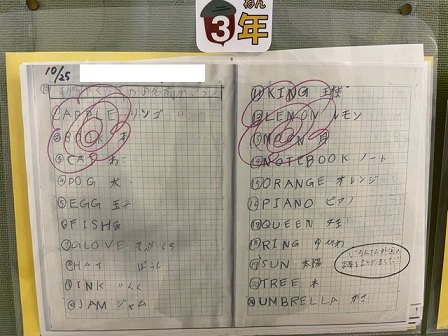 ねん
3年
10/25
① APPLE リンゴ
② BOOK 本
③ CAP
④ DOG 犬
⑤ EGG 玉子
⑥ FISH 魚
⑦ GLOVE てぶくろ
⑧ HAT ぼうし
⑨ INK いんく
⑩ JAM ジャム
⑪ KING 王様
⑫ LEMON レモン
⑬ MOON 月
⑭ NOTEBOOK ノート
⑮ ORANGE オレンジ
⑯ PIANO ピアノ
⑰ QUEEN 女王
⑱ RING ゆびわ
⑲ SUN 太陽
⑳ TREE 木
㉑ UMBRELLA かさ